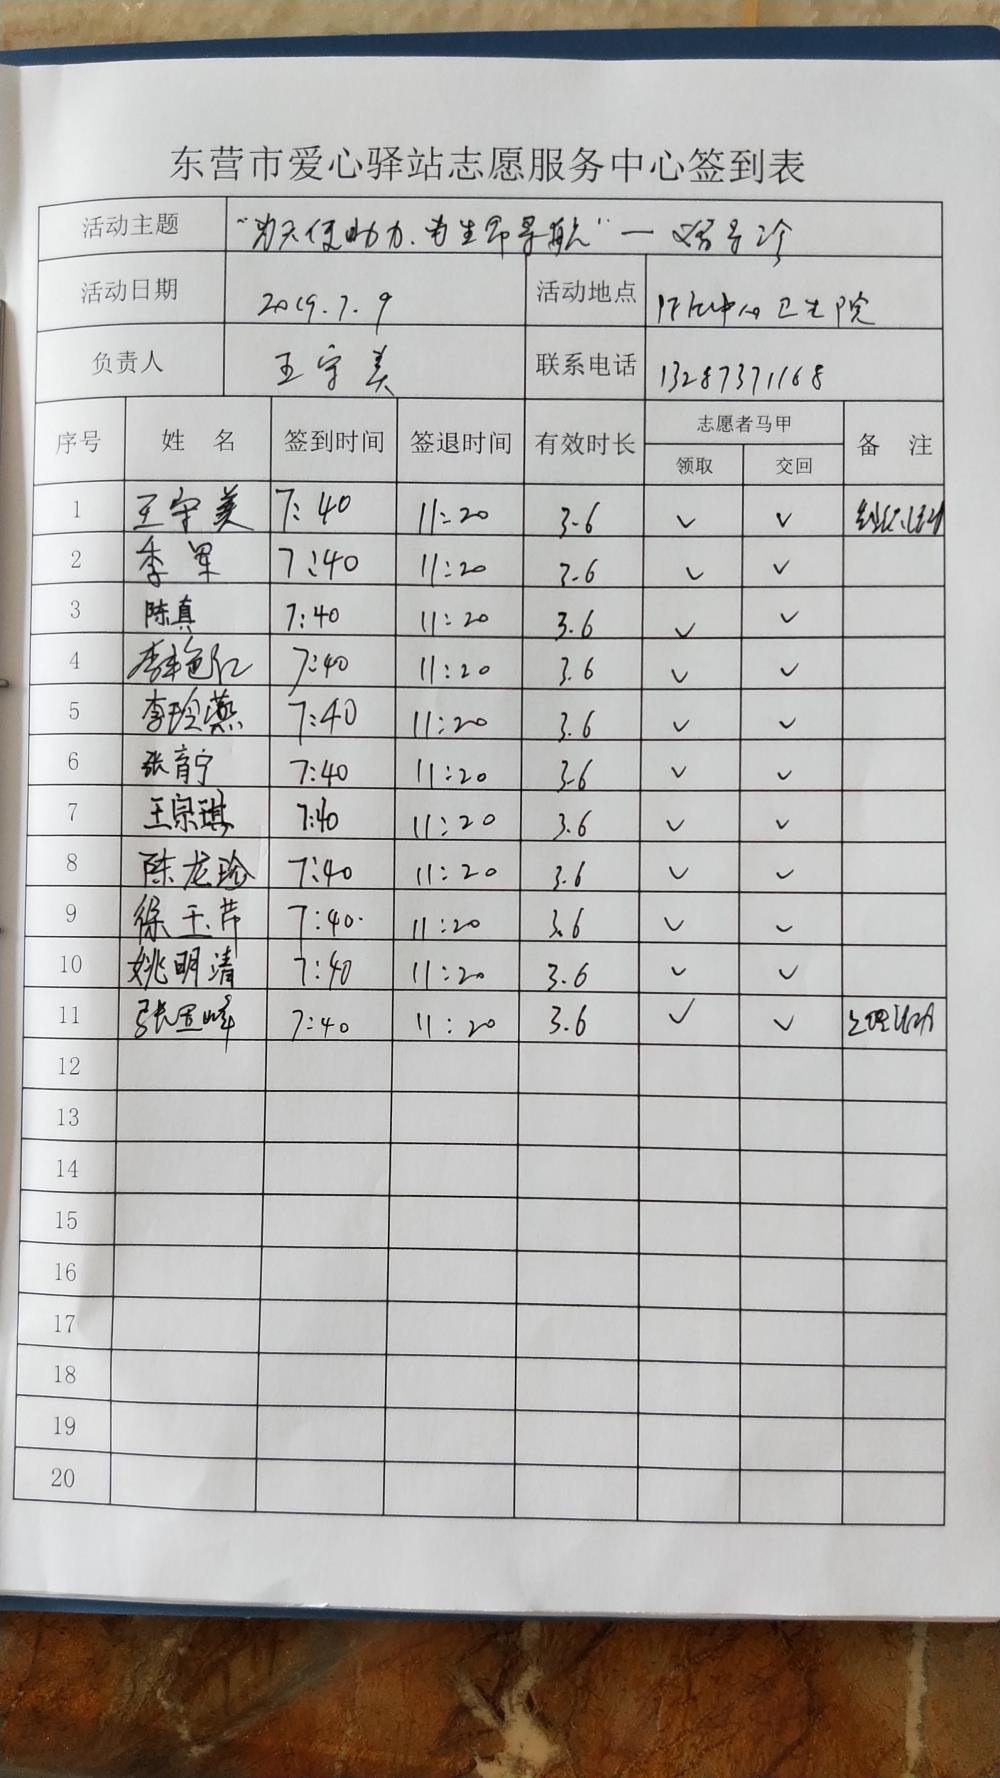 东营市爱心驿站志愿服务中心签到表
活动主题 “为天使助力、为生命导航”一 义务导诊
活动日期 2019.7.9 活动地点 中心卫生院
负责人 王守美 联系电话 13287371168
序号 姓 名 签到时间 签退时间 有效时长 志愿者马甲 备 注
领取 交回
1 王守美 7:40 11:20 3.6 ✓ ✓
2 李军 7:40 11:20 3.6 ✓ ✓
3 陈真 7:40 11:20 3.6 ✓ ✓
4 李艳红 7:40 11:20 3.6 ✓ ✓
5 李玲燕 7:40 11:20 3.6 ✓ ✓
6 张育宁 7:40 11:20 3.6 ✓ ✓
7 王宗琪 7:40 11:20 3.6 ✓ ✓
8 陈龙珍 7:40 11:20 3.6 ✓ ✓
9 徐玉芹 7:40 11:20 3.6 ✓ ✓
10 姚明清 7:40 11:20 3.6 ✓ ✓
11 张 峰 7:40 11:20 3.6 ✓ ✓
12
13
14
15
16
17
18
19
20